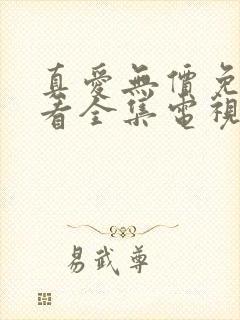 真愛無價免
看全集電視
易武尊